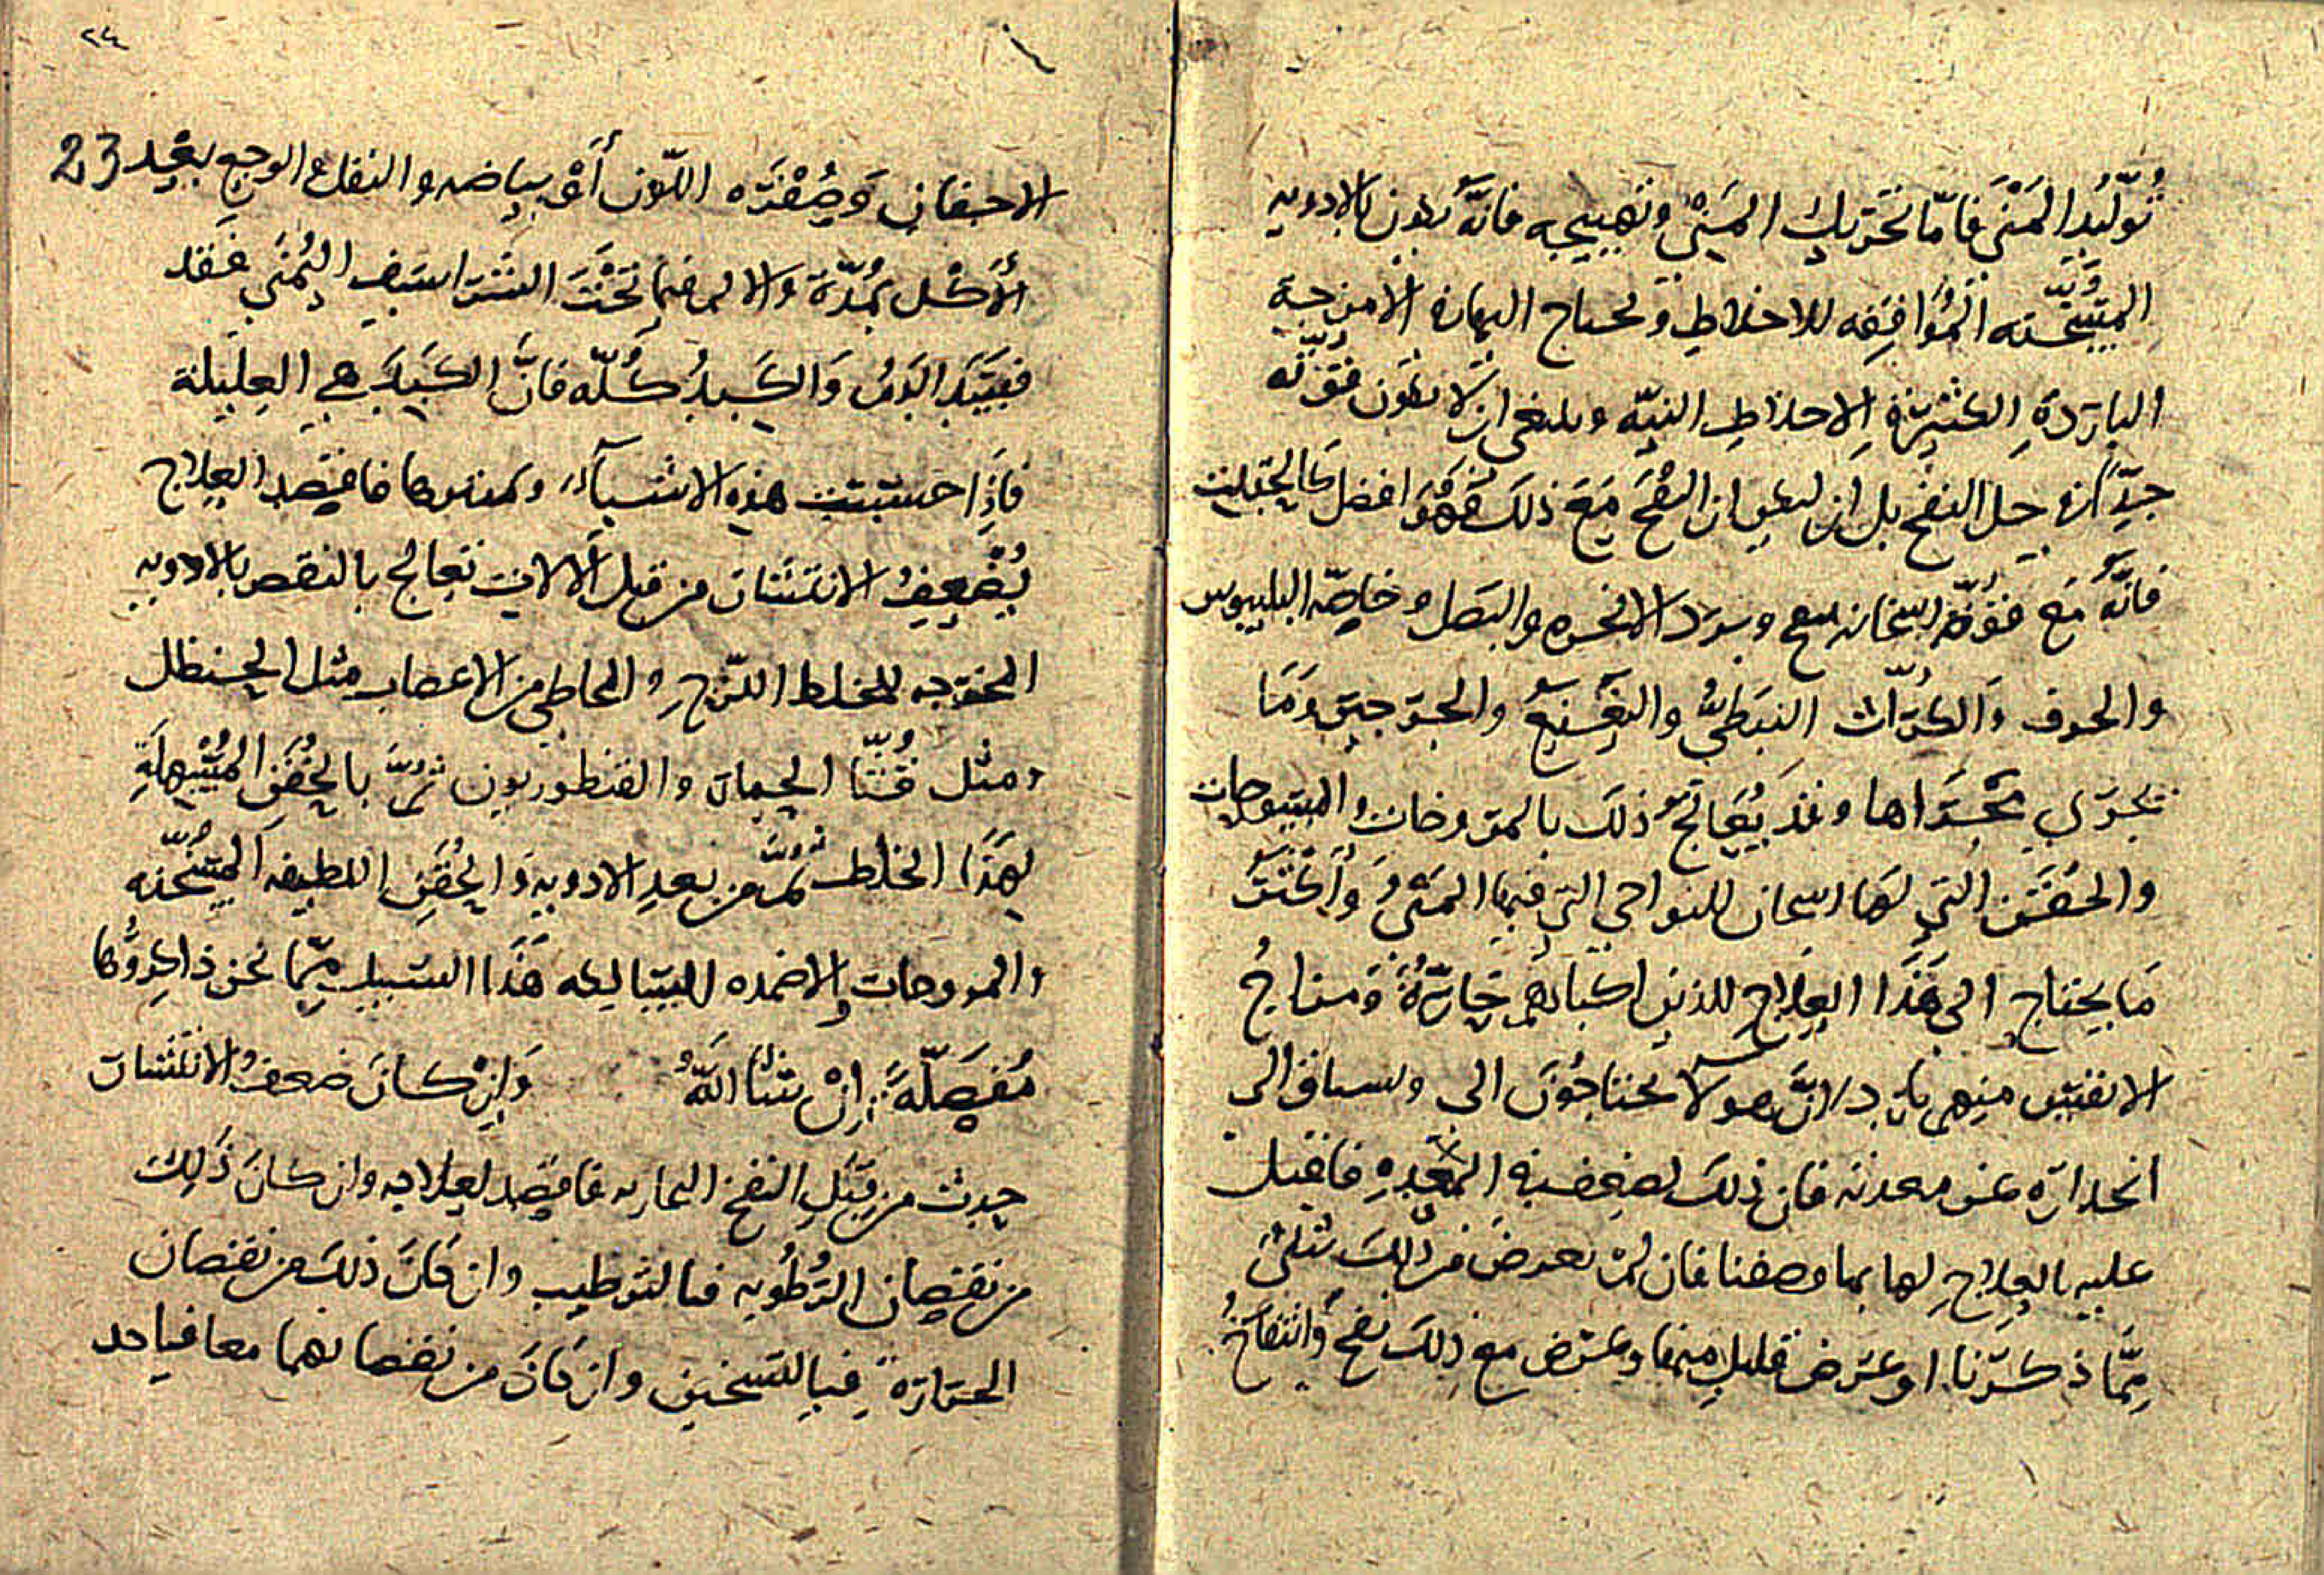 تُوَلِّيدِ المَنَي فامّا تحَريك المَنيّ وتهييجه فانَّه يكون بالادويه
المُسَخّنه المُوَافِقه للاخلاطِ وتحتاج اليها الامزجة
البَارَدَةِ الكثيَرةِ الاخلاطِ النيّه وينبغي ان لا يكون قوّته
جدًّا في حل النفخ بل ان النفخ مَعَ ذلكَ فهُوَ افضل كالحِلتيت
فانَّهُ مَع قوّة اسخانه والبَصَل وخاصّه البلبوس
والحرف وَالكرّاث النبَطيُّ والنعنع والجَرجير وَمَا
يجَري مجْرَاها وقد يُعَالج ذلك بالمروخات والمسوحات
والحُقَن التي لهَا اسخان للنواحي التي فيها المَنيُّ وَأكثَرَ
مَا يحتاج الى هَذا العِلاج للذين اكبادهم حَارَّةٌ وَمزاجُ
الانثيين منهم بارد لانَّ هولا يحتاجُونَ الى
انحدارَه عن معدنه فان ذلكَ لضعفٍ في المَعِدهِ فاقبل
عليه بالعِلاجِ لها بما وصفنا فان لمْ يعرضَ من ذلِكَ شَيْ
ممَّا ذكرَنا او عَرض قليل منها وعرض مع ذلكَ نفخ وَانتفاخُ
٢٤
23
الاجفان وَصُفْرَه اللّون أوْ بياضه والنفخ والوجع بعَيد
الأَكْل بمُدّة والالم فيما تَحْتَ الشراسيف اليُمنَي فقد
فَسَد البَدن وَالكَبِدُ كُلّه فانَّ الكَبِدَ هي العِليلة
فاذا هذه الاشيآء فاقصد العِلاج
يُضعِفُ الانتشار من قبل الآلات تعَالج بالنقص بالادويه
المخرجه للخلط اللّزجِ والمخاطي من الاعصاب مثل الحنظل
ومثل قثّا الحمار والقنطوريون ثمّ بالحُقَنِ المُسْهِلَةِ
لهَذا الخلط ثمّ من بعدِ الادويه وَالحُقَنِ اللطيفه المُسَخّنه
والمروحات والاضمده السالكه هَذا السَبيل ممّا نحن ذاكِرُوُها
مُفصَّلَةً اِنْ شا اللهُ وَاِنْ كانَ ضعفُ الانتشار
حدث من قِبَلِ النفخ البخاريه فاقصد لعلاجه وان كانَ ذَلِكَ
من نقصان الرُطُوبه فبالترطيب وان كَانَ ذلكَ من نقصان
الحَرَارَة فبالتسخين وان كَانَ من نقصانهما معا فباحد